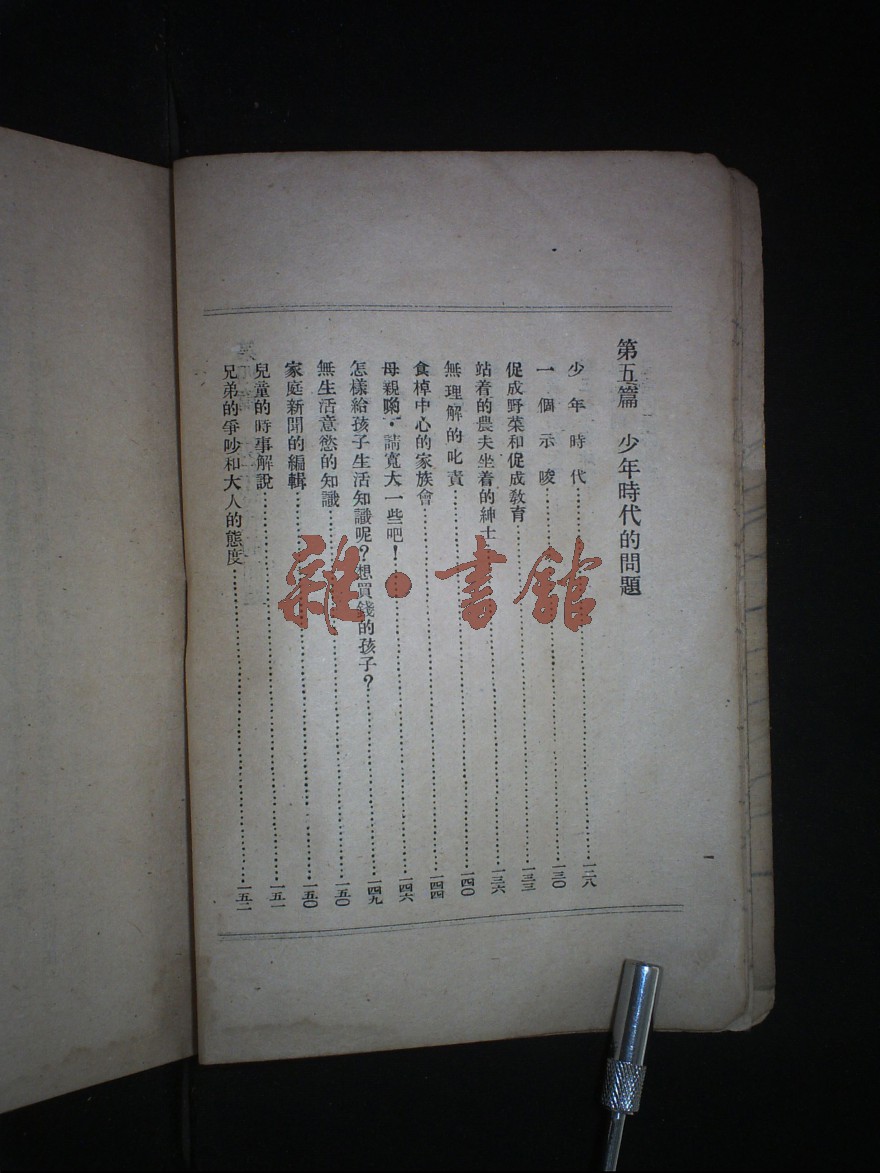 第五篇　少年時代的問題
少年時代…………一二八
一個示唆…………一三〇
促成野菜和促成教育…………一三三
站着的農夫坐着的紳士…………一三六
無理解的叱責…………一四〇
食棹中心的家族會…………一四四
母親喲・請寬大一些吧！…………一四六
怎樣給孩子生活知識呢？想買錢的孩子？…………一四九
無生活意慾的知識…………一五〇
家庭新聞的編輯…………一五〇
兒童的時事解說…………一五一
兄弟的爭吵和大人的態度…………一五二
一
雜・書館